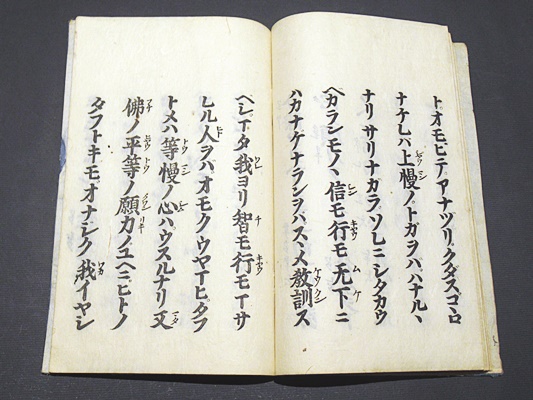 トオモヒテアナツリクダスコヽロ
ナケレハ上慢ノトガヲバハナルヽ
ナリサリナカラソレニシタカウ
ヘカランモノヽ信モ行モ无下ニ
ハカナケナランヲバスヽメ教訓ス
ヘシマタ我ヨリ智モ行モマサ
レル人ヲハオモクウヤマヒタフ
トメハ等慢ノ心ハウスルナリ又
佛ノ平等ノ願力ノユヘニヒトノ
タフトキモオナシク我イヤシ